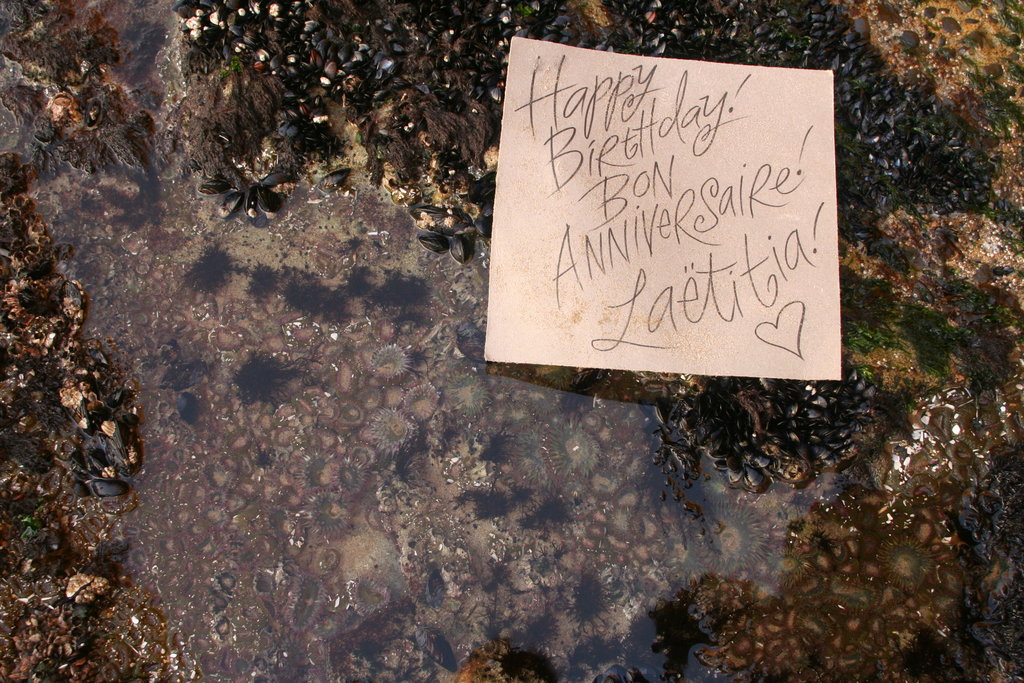 Happy
Birthday!
BON
ANNIVERSAIRE!
Laëtitia!